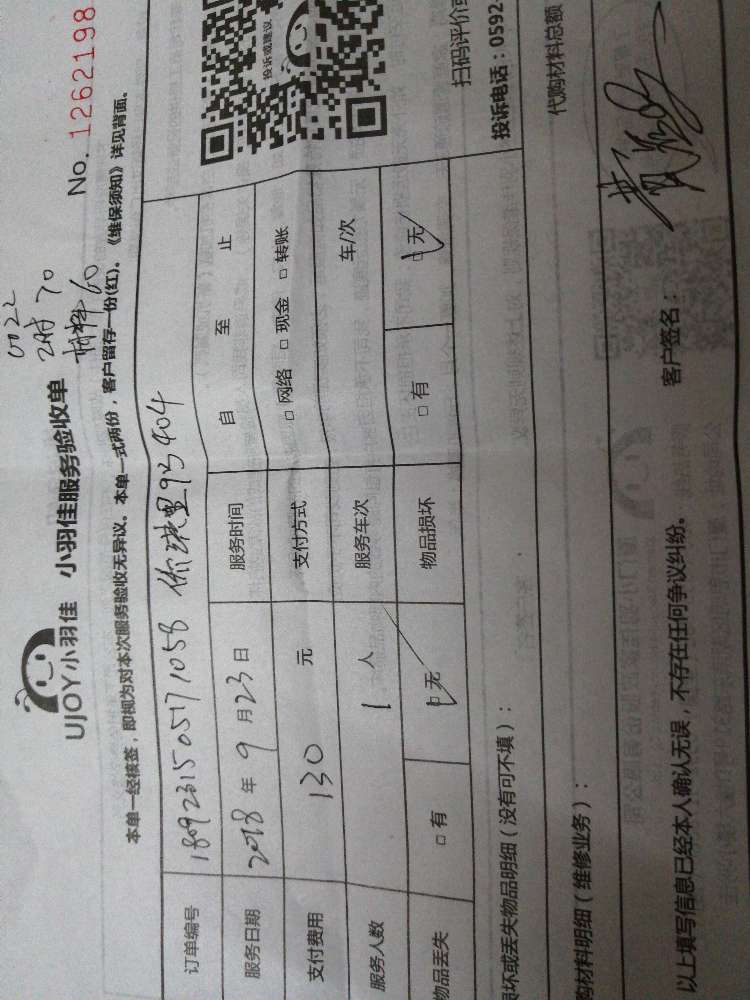 0022
2时 70
材料 60
UJOY小羽佳 小羽佳服务验收单 No. 1262198
本单一经核签，即视为对本次服务验收无异议。本单一式两份，客户留存一份(红)。《维保须知》详见背面。
订单编号 1809231505171058 93 404
服务日期 2018 年 9 月 23 日 服务时间 自 至 止
支付费用 130 元 支付方式 □ 网络 □ 现金 □ 转账
服务人数 1 人 服务车次 车/次
物品丢失 □ 有 □ 无 物品损坏 □ 有 □ 无
坏或丢失物品明细（没有可不填）：
购材料明细（维修业务）： 代购材料总额
以上填写信息已经本人确认无误，不存在任何争议纠纷。 客户签名：
投诉或建议
扫码评价或
投诉电话：0592-